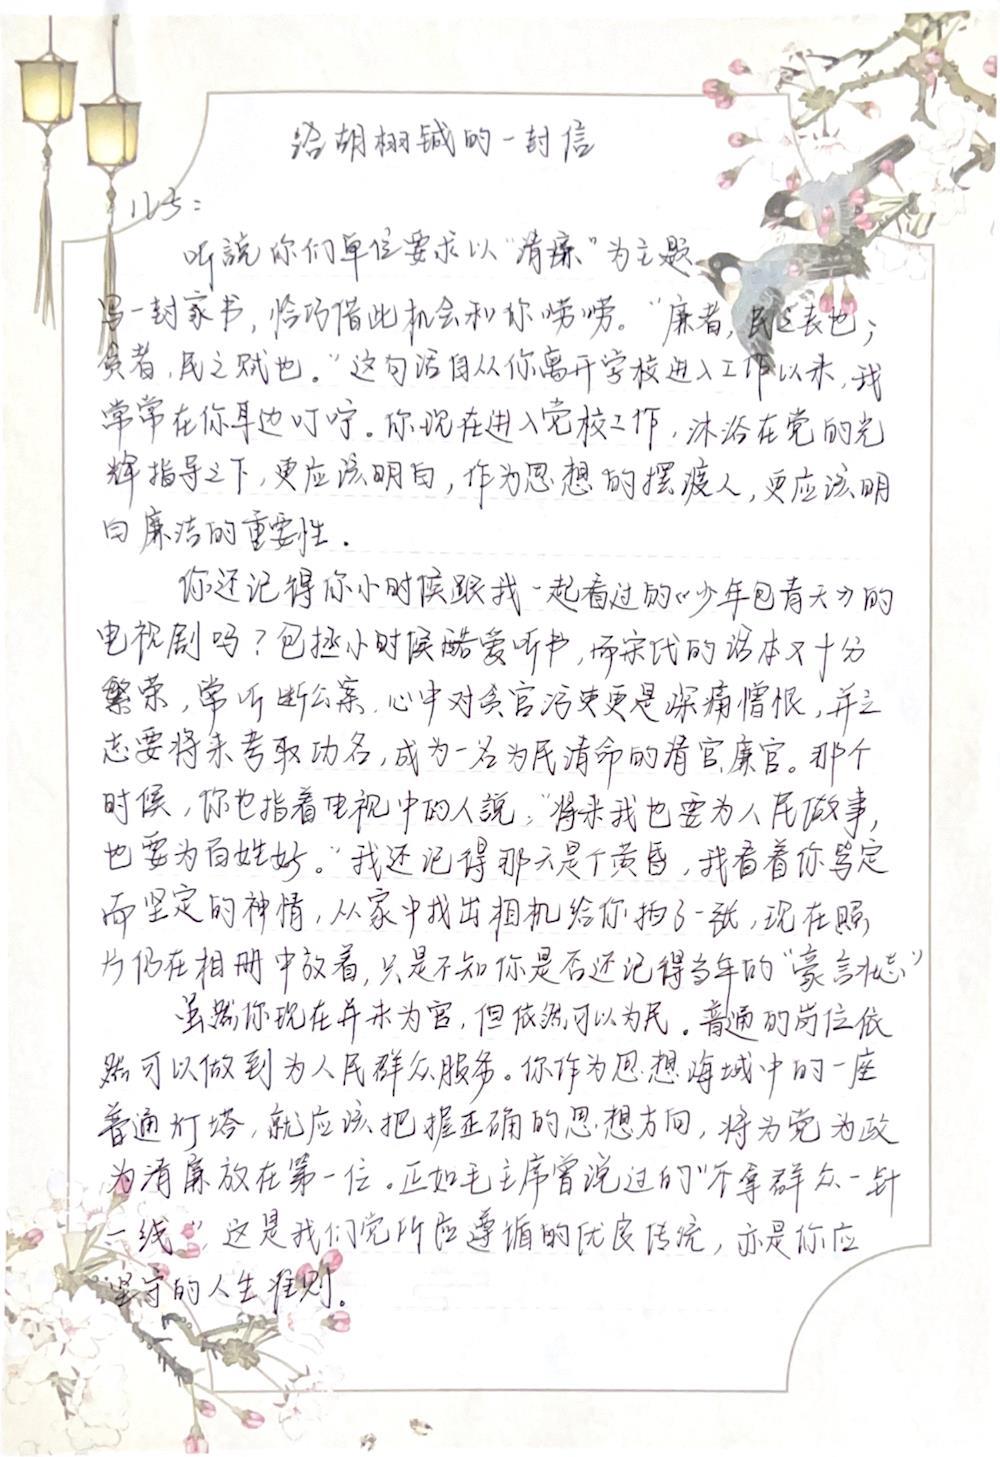 给胡栩铖的一封信
儿子：
听説你们单位要求以“清廉”为主题
写一封家书，恰巧借此机会和你唠唠。“廉者，民之表也；
贪者，民之贼也。”这句话自从你离开学校进入工作以来，我
常常在你耳边叮咛。你现在进入党校工作，沐浴在党的光
辉指导之下，更应该明白，作为思想的摆渡人，更应该明
白廉洁的重要性．
你还记得你小时候跟我一起看过的《少年包青天》的
电视剧吗？包拯小时候酷爱听书，而宋代的话本又十分
繁荣，常听断公案，心中对贪官污吏更是深痛憎恨，并立
志要将来考取功名，成为一名为民清命的清官廉官。那个
时候，你也指着电视中的人説：“将来我也要为人民做事，
也要为百姓好。”我还记得那天是个黄昏，我看着你笃定
而坚定的神情，从家中找出相机给你拍了一张，现在照
片仍在相册中放着，只是不知你是否还记得当年的“豪言壮志”
虽然你现在并未为官，但依然可以为民．普通的岗位依
然可以做到为人民群众服务。你作为思想海域中的一座
普通灯塔，就应该把握正确的思想方向，将为党为政
为清廉放在第一位．正如毛主席曾说过的“不拿群众一针
一线”，这是我们党所应遵循的优良传统，亦是你应
坚守的人生准则。